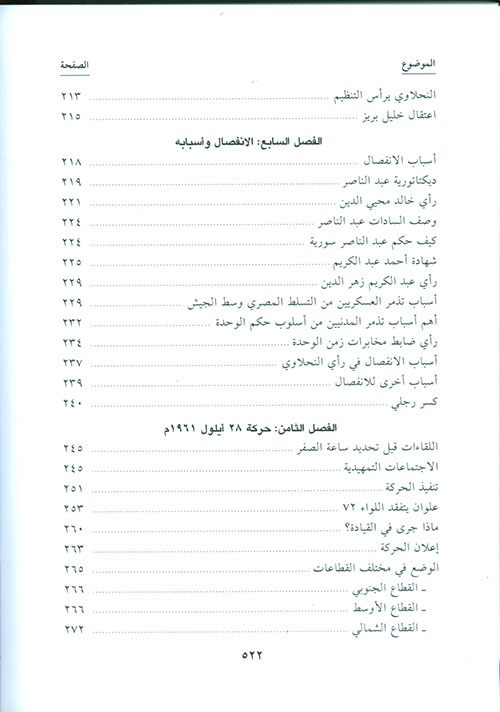 الموضوع الصفحة
النحلاوي يرأس التنظيم ٢١٣
اعتقال خليل بريز ٢١٥
الفصل السابع: الانفصال وأسبابه
أسباب الانفصال ٢١٨
ديكتاتورية عبد الناصر ٢١٩
رأي خالد محيي الدين ٢٢١
وصف السادات عبد الناصر ٢٢٤
كيف حكم عبد الناصر سورية ٢٢٤
شهادة أحمد عبد الكريم ٢٢٥
رأي عبد الكريم زهر الدين ٢٢٩
أسباب تذمر العسكريين من التسلط المصري وسط الجيش ٢٢٩
أهم أسباب تذمر المدنيين من أسلوب حكم الوحدة ٢٣٢
رأي ضابط مخابرات زمن الوحدة ٢٣٤
أسباب الانفصال في رأي النحلاوي ٢٣٧
أسباب أخرى للانفصال ٢٣٩
كسر رجلي ٢٤٠
الفصل الثامن: حركة ٢٨ أيلول ١٩٦١م
اللقاءات قبل تحديد ساعة الصفر ٢٤٥
الاجتماعات التمهيدية ٢٤٥
تنفيذ الحركة ٢٥١
علوان يتفقد اللواء ٧٢ ٢٥٣
ماذا جرى في القيادة؟ ٢٦٠
إعلان الحركة ٢٦٣
الوضع في مختلف القطاعات ٢٦٥
ـ القطاع الجنوبي ٢٦٦
ـ القطاع الأوسط ٢٦٦
ـ القطاع الشمالي ٢٧٢
٥٢٢